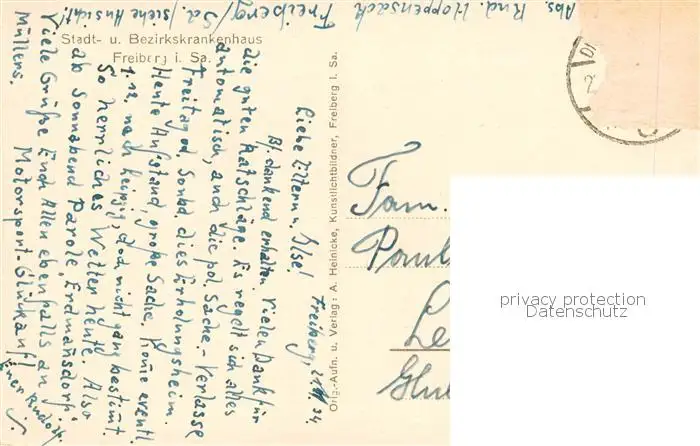 Abs. Rud. Hoppensack
Freiberg/Sa. (siehe Ansicht!)
Stadt- u. Bezirkskrankenhaus
Freiberg i. Sa.
Freiberg, 34.
Liebe Eltern u. Ilse!
dankend erhalten vielen Dank für
die guten Ratschläge. Es regelt sich alles
automatisch, auch die pol. Sache. Verlasse
Freitag od. Sonnb. dies Erholungsheim.
Heute Aufstand, große Sache. Komme eventl.
nach Leipzig, doch nicht ganz bestimmt.
So herrliches Wetter heute. Also
ab Sonnabend Parole "Erdmansdorf".
Viele Grüße Euch Allen ebenfalls an
Müllers. Motorsport-Glückauf!
Euer Rudolf.
Orig.-Aufn. u. Verlag: A. Heinicke, Kunstlichtbildner, Freiberg i. Sa.
Fam.
Paul
Le
privacy protection
Datenschutz